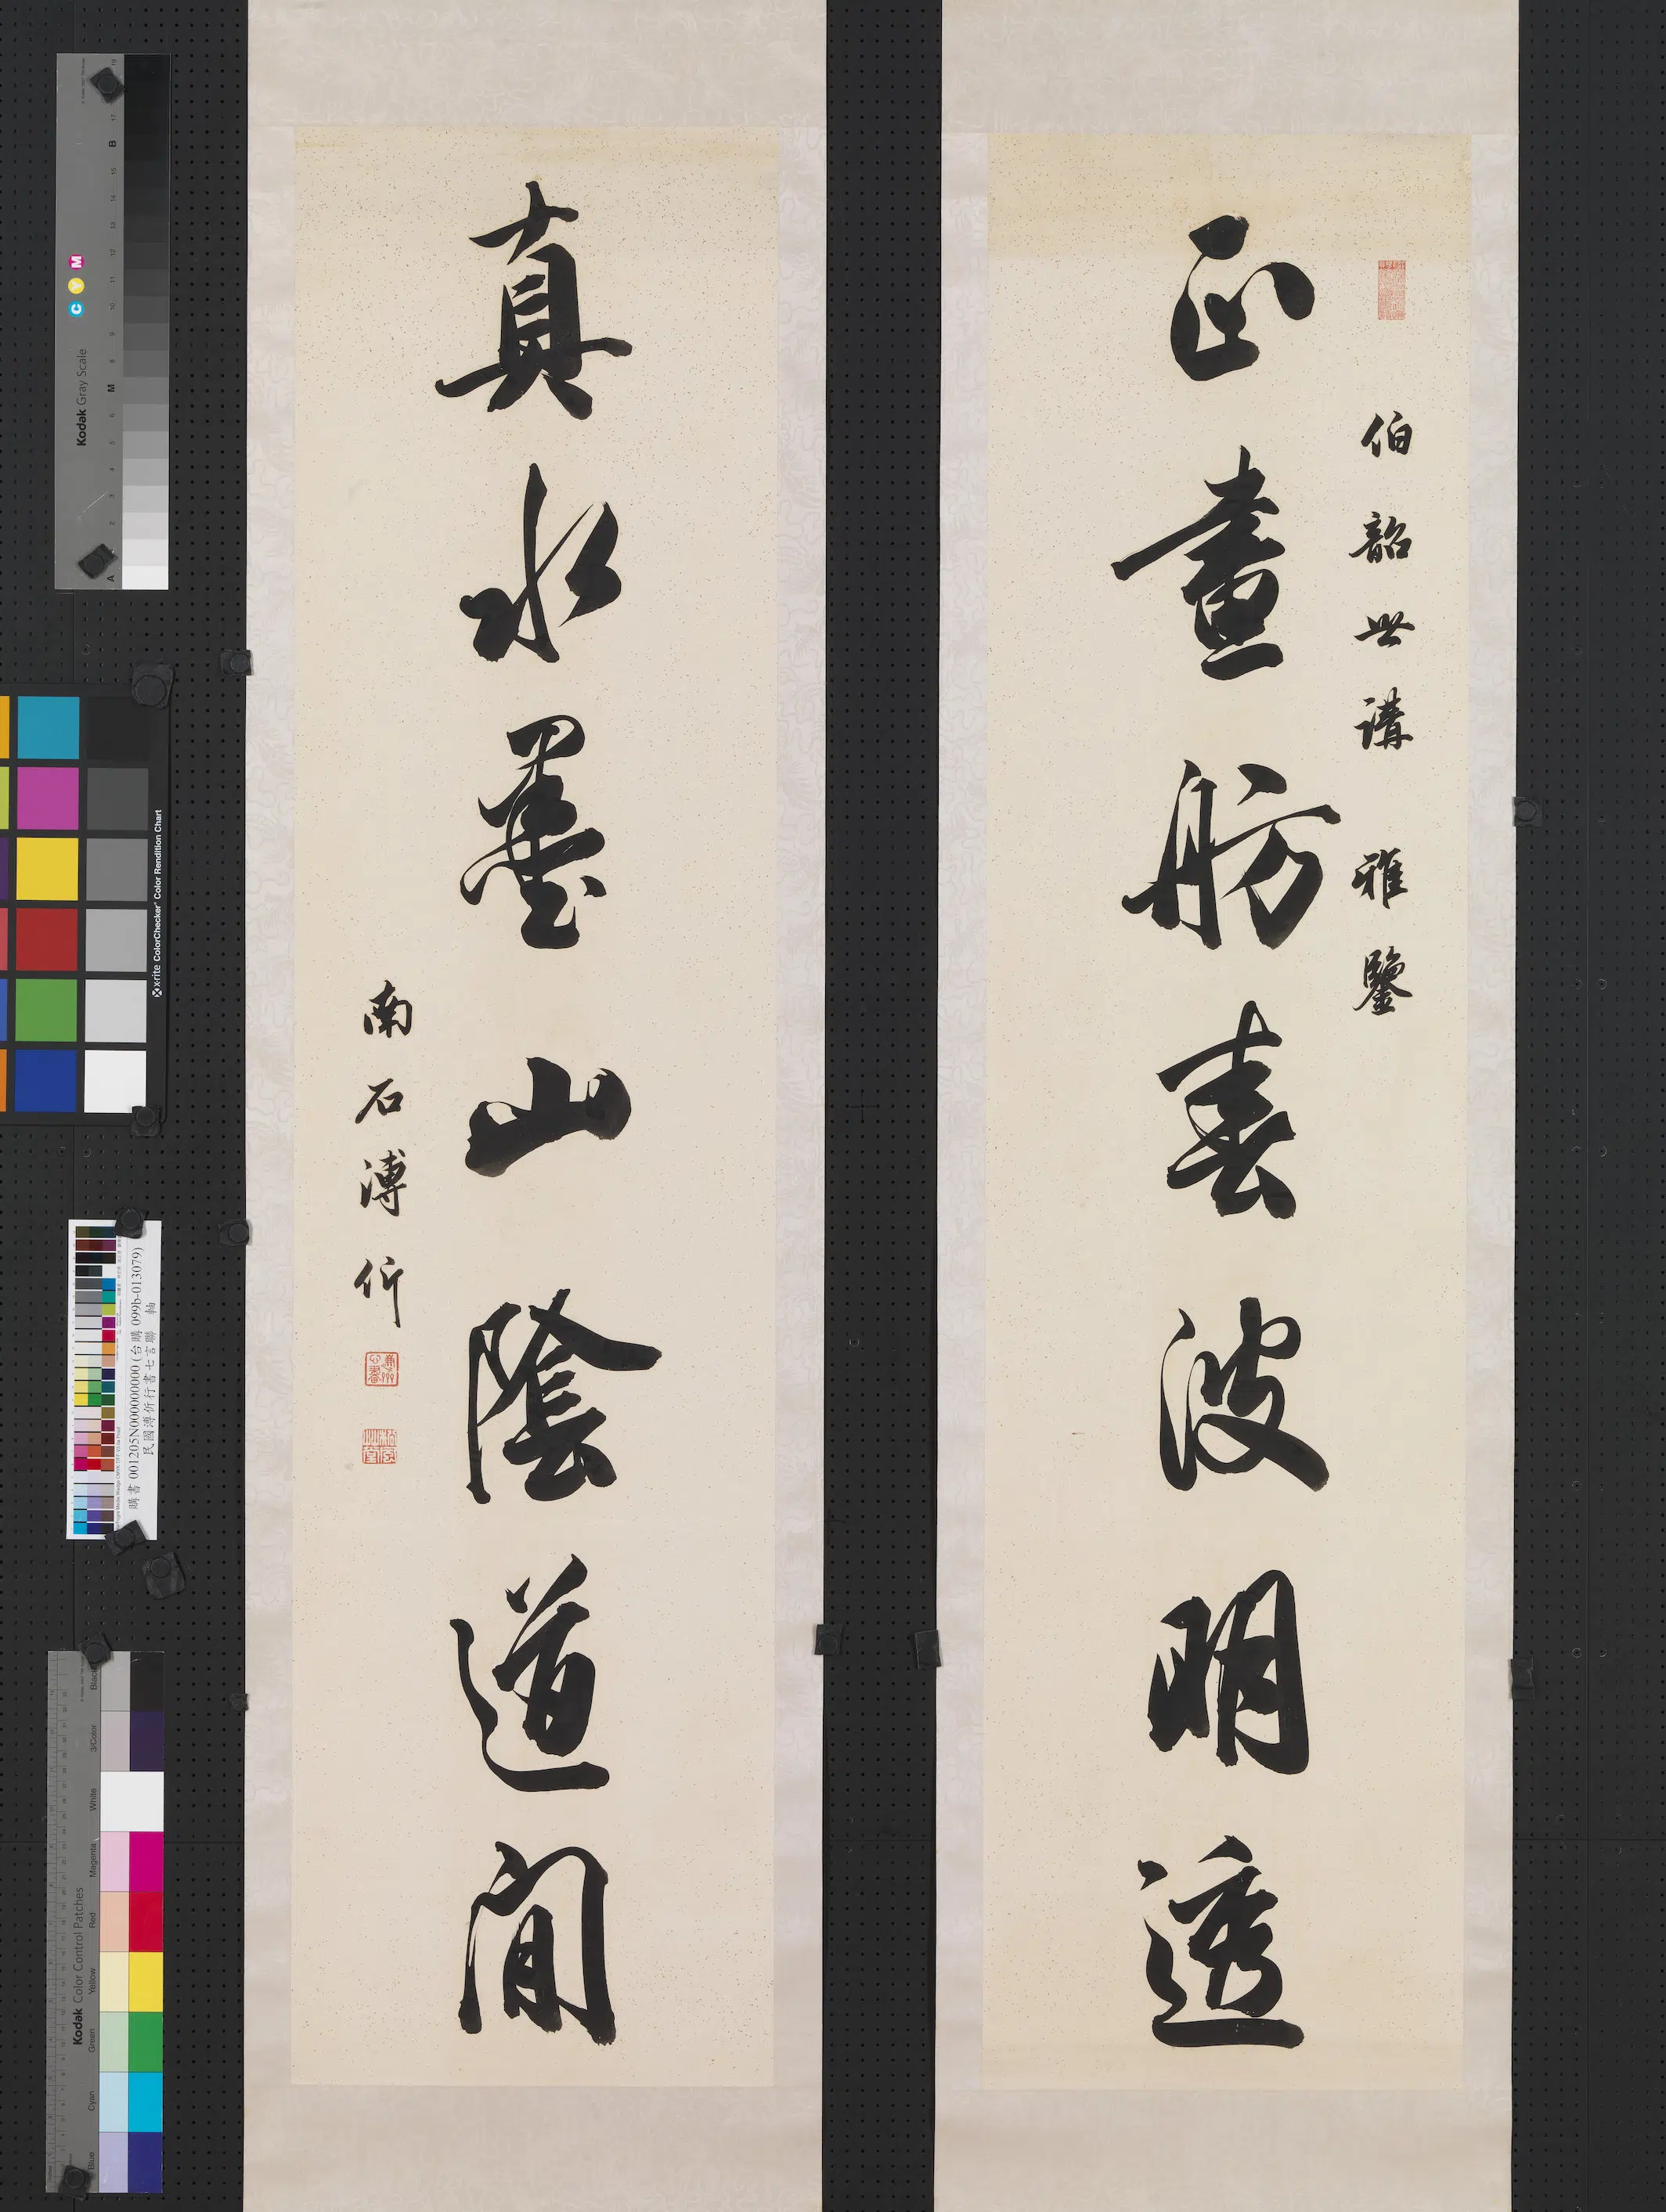 正畫舫春波明透
伯韶世講 雅鑒
真水墨山陰道間
南石溥伒
Kodak Gray Scale
C Y M
x-rite ColorChecker Color Rendition Chart
購書 001205N000000000 (台購 099b-013079)
民國溥伒行書七言聯 軸
Kodak Color Control Patches
Blue
Cyan
Green
Yellow
Red
Magenta
White
3/Color
Black